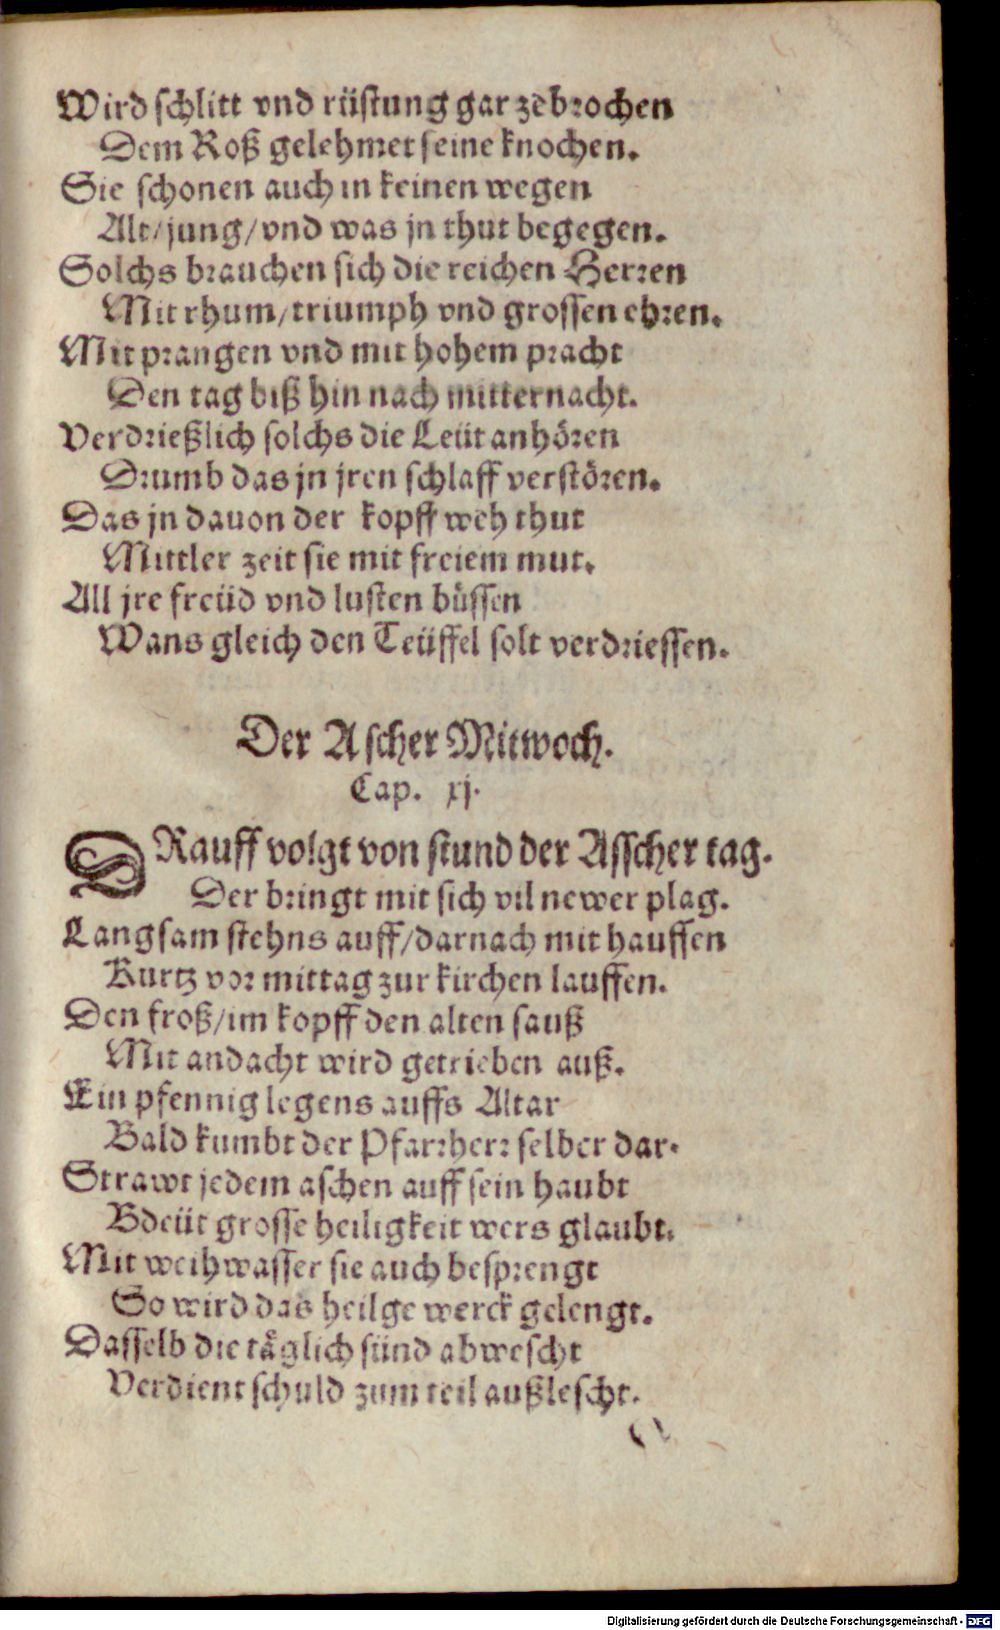 Wird schlitt vnd rüstung gar zebrochen
Dem Roß gelehmet seine knochen.
Sie schonen auch in keinen wegen
Alt/jung/vnd was jn thut begegen.
Solchs brauchen sich die reichen Herren
Mit rhum/triumph vnd grossen ehren.
Mit prangen vnd mit hohem pracht
Den tag biß hin nach mitternacht.
Verdrießlich solchs die Leüt anhören
Drumb das jn jren schlaff verstören.
Das jn dauon der kopff weh thut
Mittler zeit sie mit freiem mut.
All jre freüd vnd lusten büssen
Wans gleich den Teüffel solt verdriessen.
Der Ascher Mitwoch.
Cap. xj.
DRauff volgt von stund der Asscher tag.
Der bringt mit sich vil newer plag.
Langsam stehns auff/darnach mit hauffen
Kurtz vor mittag zur kirchen lauffen.
Den froß/im kopff den alten sauß
Mit andacht wird getrieben auß.
Ein pfennig legens auffs Altar
Bald kumbt der Pfarrherr selber dar.
Strawt jedem aschen auff sein haubt
Bdeüt grosse heiligkeit wers glaubt.
Mit weihwasser sie auch besprengt
So wird das heilge werck gelengt.
Dasselb die täglich sünd abwescht
Verdient schuld zum teil außlescht.
Digitalisierung gefördert durch die Deutsche Forschungsgemeinschaft - DFG